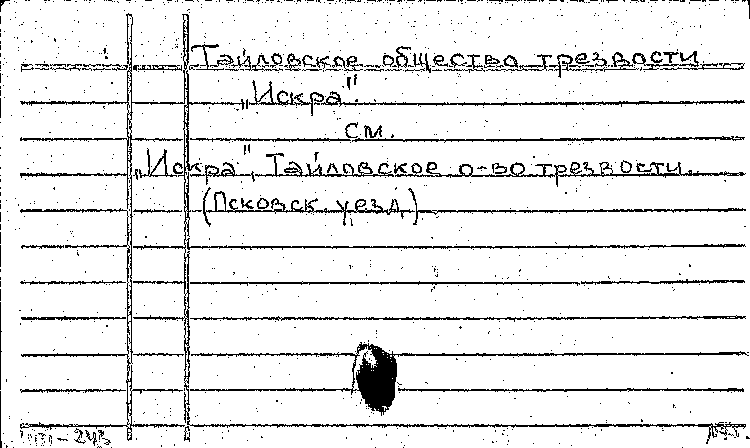 Тайловское общество трезвости
„Искра".
см.
„Искра", Тайловское о-во трезвости.
(Псковск. уезд.)